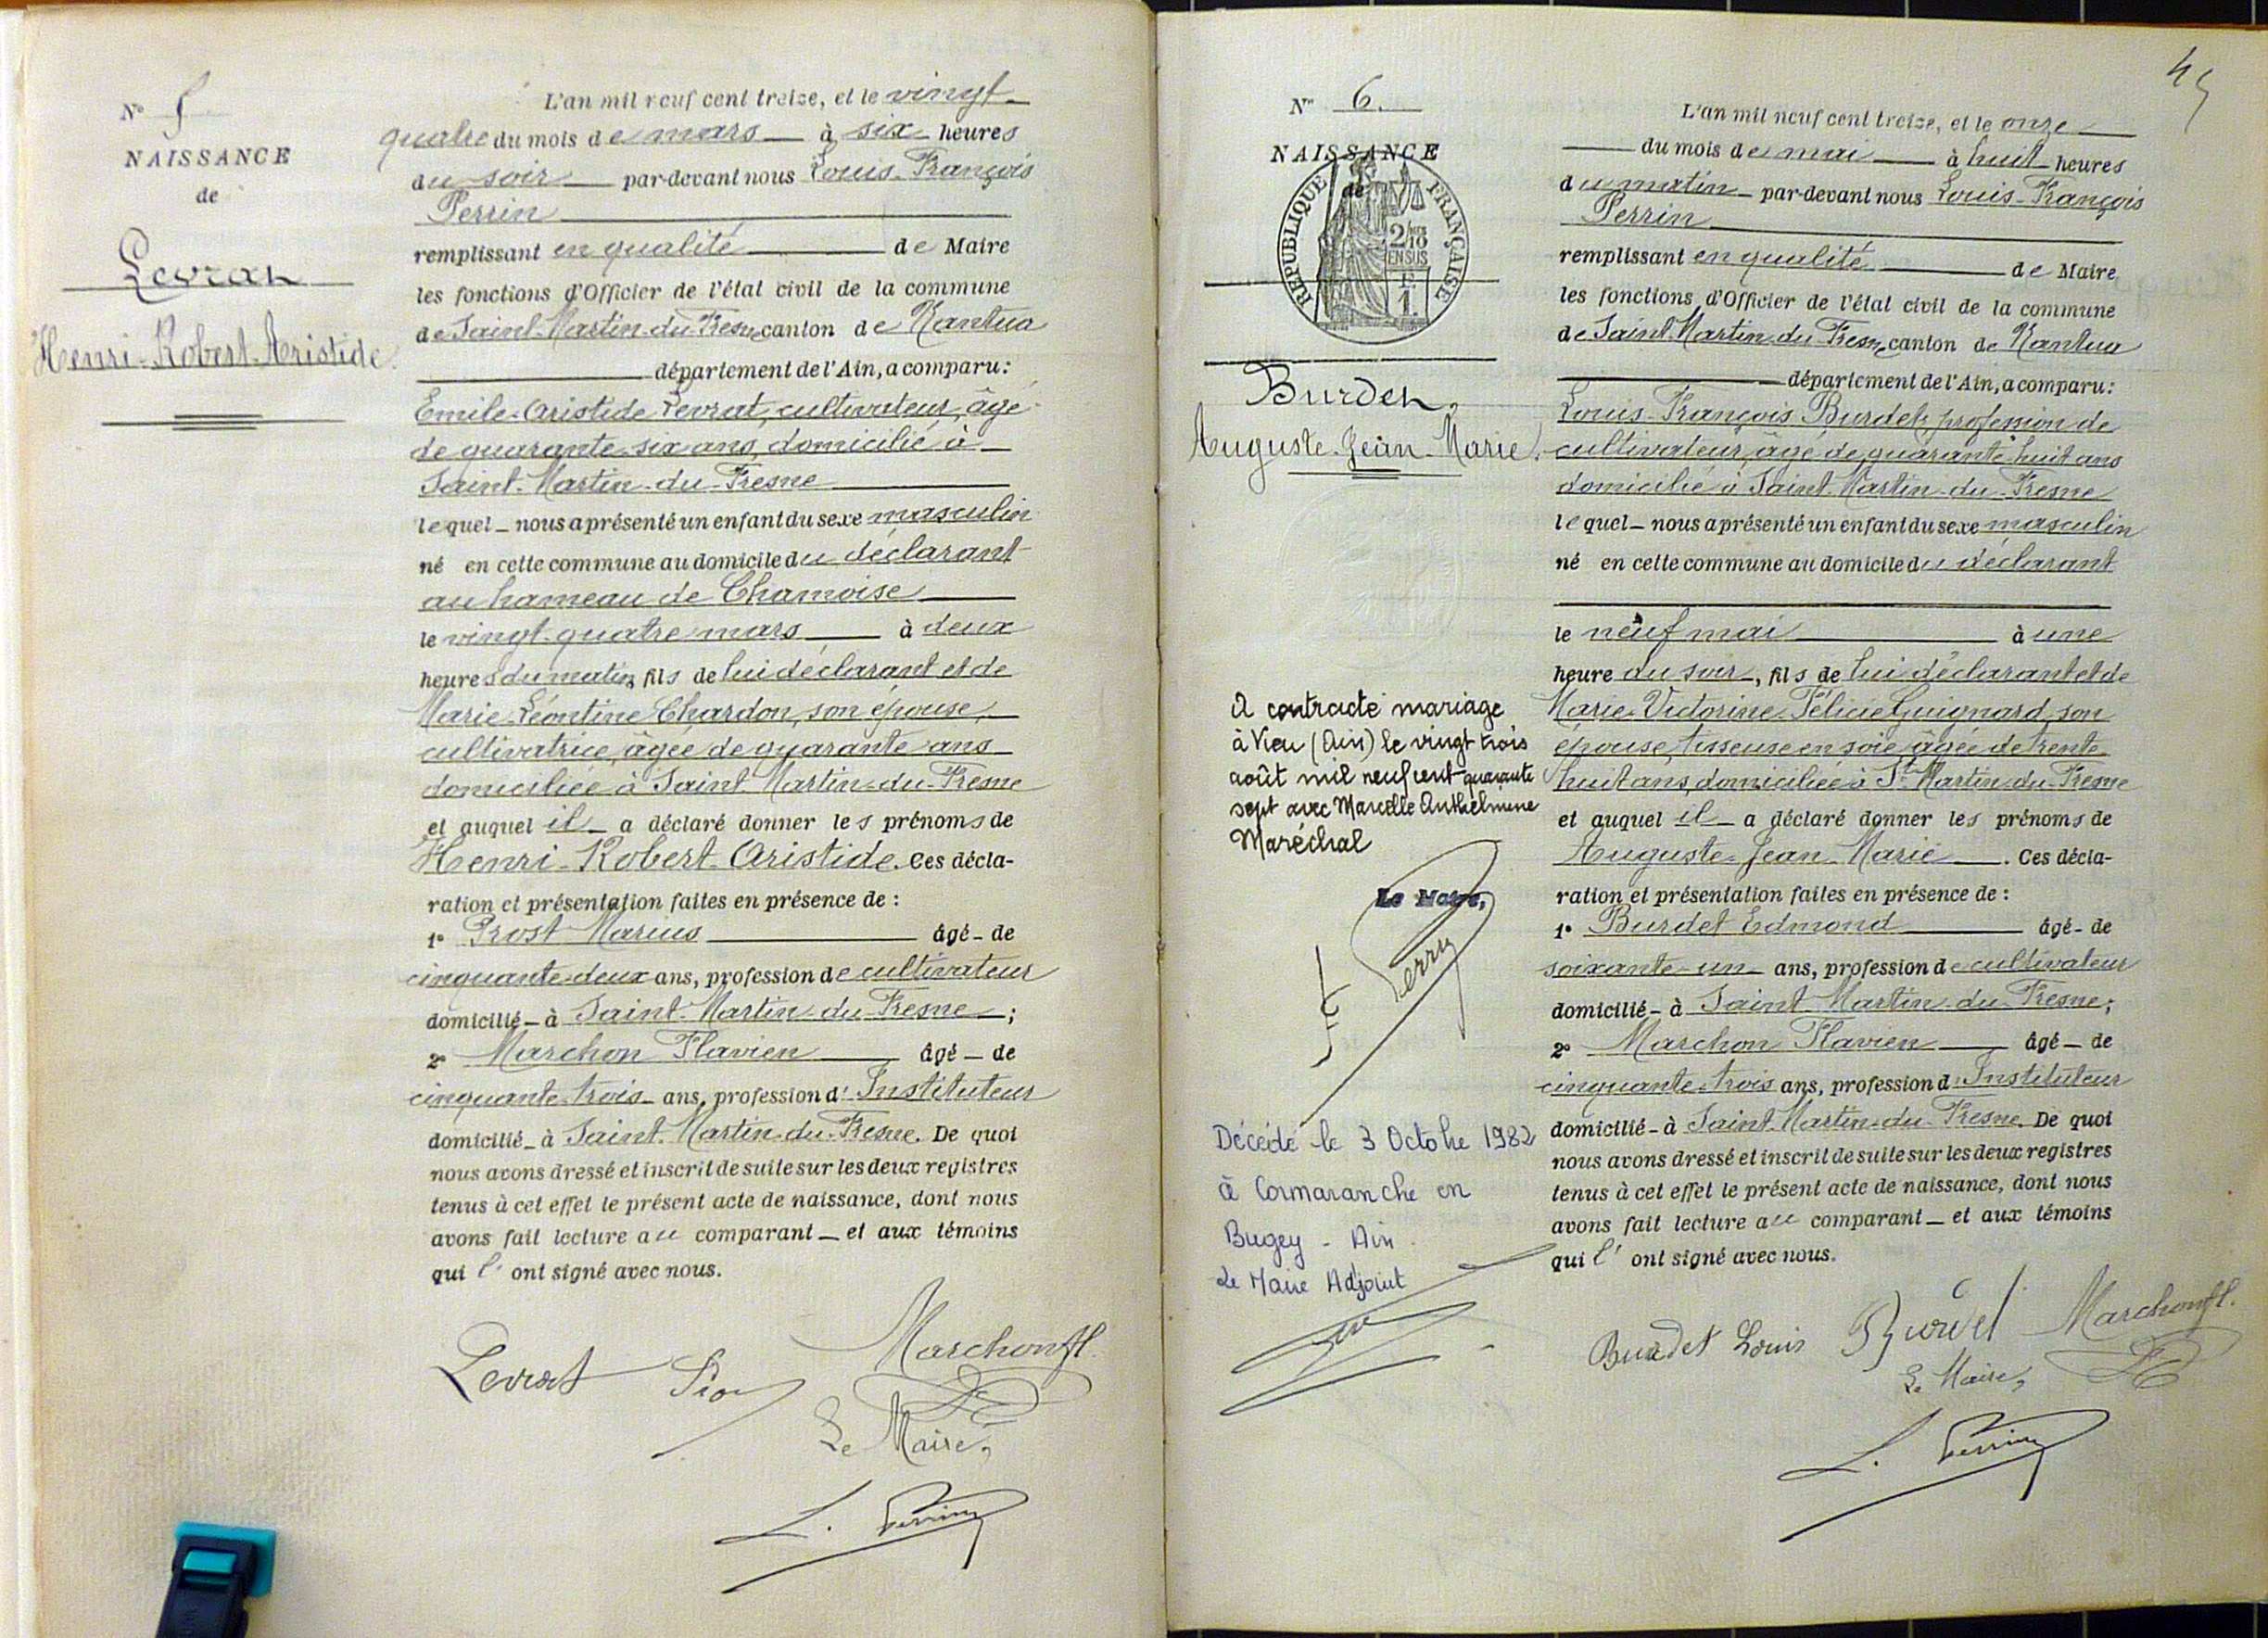 N° 5
NAISSANCE
de
Levrat
Henri-Robert-Aristide
L'an mil neuf cent treize, et le vingt-
quatre du mois de mars à six heures
du soir par-devant nous Louis-François
Perrin
remplissant en qualité de Maire
les fonctions d'Officier de l'état civil de la commune
de Saint-Martin-du-Fresne, canton de Nantua
département de l'Ain, a comparu:
Emile-Aristide Levrat, cultivateur, âgé
de quarante-six ans, domicilié à
Saint-Martin-du-Fresne
lequel nous a présenté un enfant du sexe masculin
né en cette commune au domicile du déclarant
au hameau de Chamoise
le vingt-quatre mars à deux
heures du matin, fils de lui déclarant et de
Marie-Léontine Chardon, son épouse,
cultivatrice, âgée de quarante ans
domiciliée à Saint-Martin-du-Fresne
et auquel il a déclaré donner les prénoms de
Henri-Robert-Aristide. Ces décla-
ration et présentation faites en présence de :
1° Prost Marius âgé de
cinquante-deux ans, profession de cultivateur
domicilié à Saint-Martin-du-Fresne ;
2° Marchon Flavien âgé de
cinquante-trois ans, profession d'Instituteur
domicilié à Saint-Martin-du-Fresne. De quoi
nous avons dressé et inscrit de suite sur les deux registres
tenus à cet effet le présent acte de naissance, dont nous
avons fait lecture au comparant et aux témoins
qui l'ont signé avec nous.
Levrat Marchon fl.
Le Maire,
L. Perrin
45
N° 6.
NAISSANCE
de
REPUBLIQUE FRANÇAISE
2/10
EN SUS
F.
1.
Burdet,
Auguste-Jean-Marie.
A contracté mariage
à Vieu (Ain) le vingt trois
août mil neuf cent quarante
sept avec Marcelle Anthelmine
Maréchal
Le Maire,
Perrin
Décédé le 3 Octobre 1982
à Cormaranche en
Bugey - Ain
Le Maire Adjoint
L'an mil neuf cent treize, et le onze
du mois de mai à huit heures
du matin par-devant nous Louis-François
Perrin
remplissant en qualité de Maire
les fonctions d'Officier de l'état civil de la commune
de Saint-Martin-du-Fresne, canton de Nantua
département de l'Ain, a comparu:
Louis-François Burdet, profession de
cultivateur, âgé de quarante-huit ans
domicilié à Saint-Martin-du-Fresne
lequel nous a présenté un enfant du sexe masculin
né en cette commune au domicile du déclarant
le neuf mai à une
heure du soir, fils de lui déclarant et de
Marie-Victorine-Félicie Guignard, son
épouse, tisseuse en soie, âgée de trente
huit ans, domiciliée à St-Martin-du-Fresne
et auquel il a déclaré donner les prénoms de
Auguste-Jean-Marie. Ces décla-
ration et présentation faites en présence de :
1° Burdet Edmond âgé de
soixante-un ans, profession de cultivateur
domicilié à Saint-Martin-du-Fresne ;
2° Marchon Flavien âgé de
cinquante-trois ans, profession d'Instituteur
domicilié à Saint-Martin-du-Fresne. De quoi
nous avons dressé et inscrit de suite sur les deux registres
tenus à cet effet le présent acte de naissance, dont nous
avons fait lecture au comparant et aux témoins
qui l'ont signé avec nous.
Burdet Louis Burdet Marchon fl.
Le Maire,
L. Perrin